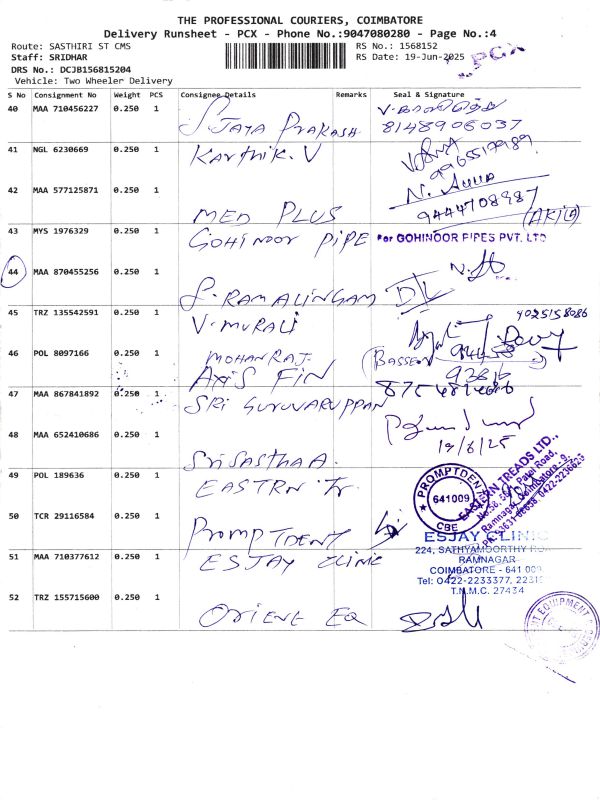 THE PROFESSIONAL COURIERS, COIMBATORE
Delivery Runsheet - PCX - Phone No.:9047080280 - Page No.:4
Route: SASTHIRI ST CMS
RS No.: 1568152
Staff: SRIDHAR
RS Date: 19-Jun-2025
PCX
DRS No.: DCJB156815204
Vehicle: Two Wheeler Delivery
S No Consignment No Weight PCS Consignee Details Remarks Seal & Signature
40 MAA 710456227 0.250 1
S. JAYA PRAKASH
8148906037
41 NGL 6230669 0.250 1
Karthik. V
9965517989
42 MAA 577125871 0.250 1
MED PLUS
9444708987
43 MYS 1976329 0.250 1
GOHINOOR PIPE
For GOHINOOR PIPES PVT. LTD
44 MAA 870455256 0.250 1
S. RAMALINGAM
45 TRZ 135542591 0.250 1
V. MURALI
46 POL 8097166 0.250 1
MOHANRAJ.
AXIS FIN
47 MAA 867841892 0.250 1
SRI GURUVARUPPAN
48 MAA 652410686 0.250 1
19/6/25
Sri SASTHAA.
49 POL 189636 0.250 1
EASTRN Tr.
EASTERN TREADS LTD.,
50 TCR 29116584 0.250 1
PROMPTDENT
PROMPTDENT
641009
CBE
51 MAA 710377612 0.250 1
ESJAY CLINIC
ESJAY CLINIC
224, SATHYAMOORTHY ROA
RAMNAGAR
COIMBATORE - 641 009
Tel: 0422-2233377, 2231
T.N.M.C. 27434
52 TRZ 155715600 0.250 1
ORIENT EQ